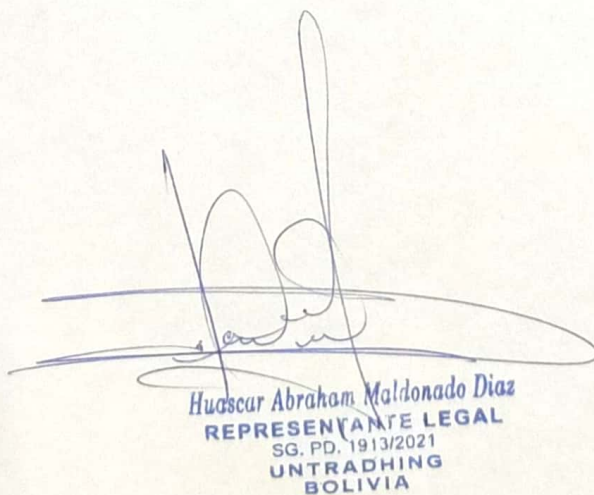 Huascar Abraham Maldonado Diaz
REPRESENTANTE LEGAL
SG. PD. 1913/2021
UNTRADHING
BOLIVIA